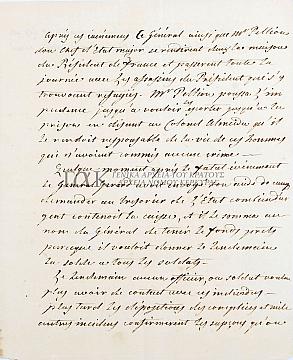 Après ces minuties le Général ainsi que Mr Pellion
son chef d'Etat major se rendirent dans la maison
du Résident de France et passerent toute la
journée avec les assassins du Président qui s'y
trouvoient refugiés. Mr Pellion poussa l'im
pudence jusqu'à vouloir escorter jusqu'à la
prison en disant au Colonel Almeida qu'il
le rendoit responsable de la vie de ces hommes
qui n'avoient commis aucun crime.
Quelque moment après le fatal événement
le Général Gerard avoit envoyé son aide de camp
demander au Tresorier de l'Etat combien d'ar
gent contenoit la caisse, et il le somma au
nom du Général de tenir le fonds prets
parceque il vouloit donner le lendemain
la solde a tous les soldats.
Le lendemain aucun officier, ou soldat voulu
plus avoir de contact avec ces individus
plus tard les depositions des complices et mille
autres incidens confirmerent les soupçons qu'on
ΓΕΝΙΚΑ ΑΡΧΕΙΑ ΤΟΥ ΚΡΑΤΟΥΣ